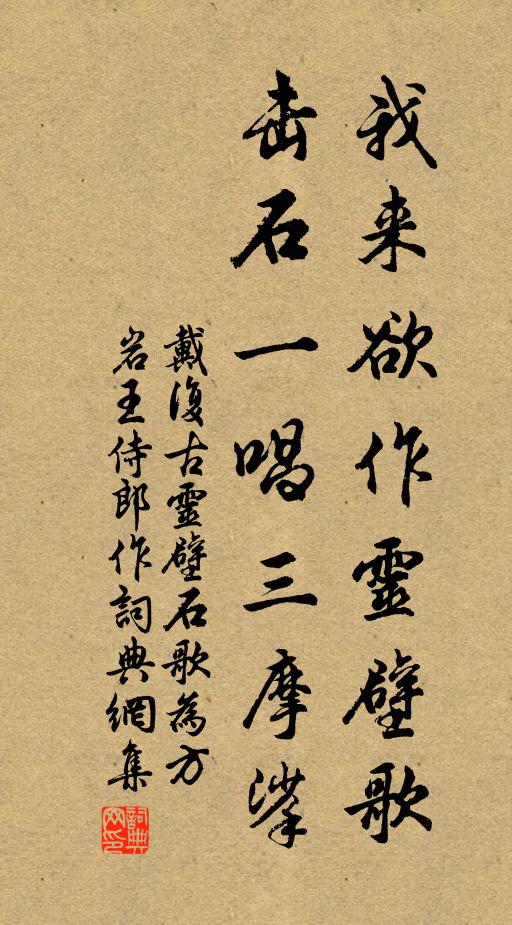 我来欲作靈壁歌
击石一唱三摩挲
戴復古靈壁石歌為方
岩王侍郎作詞典網集
詞典
网印